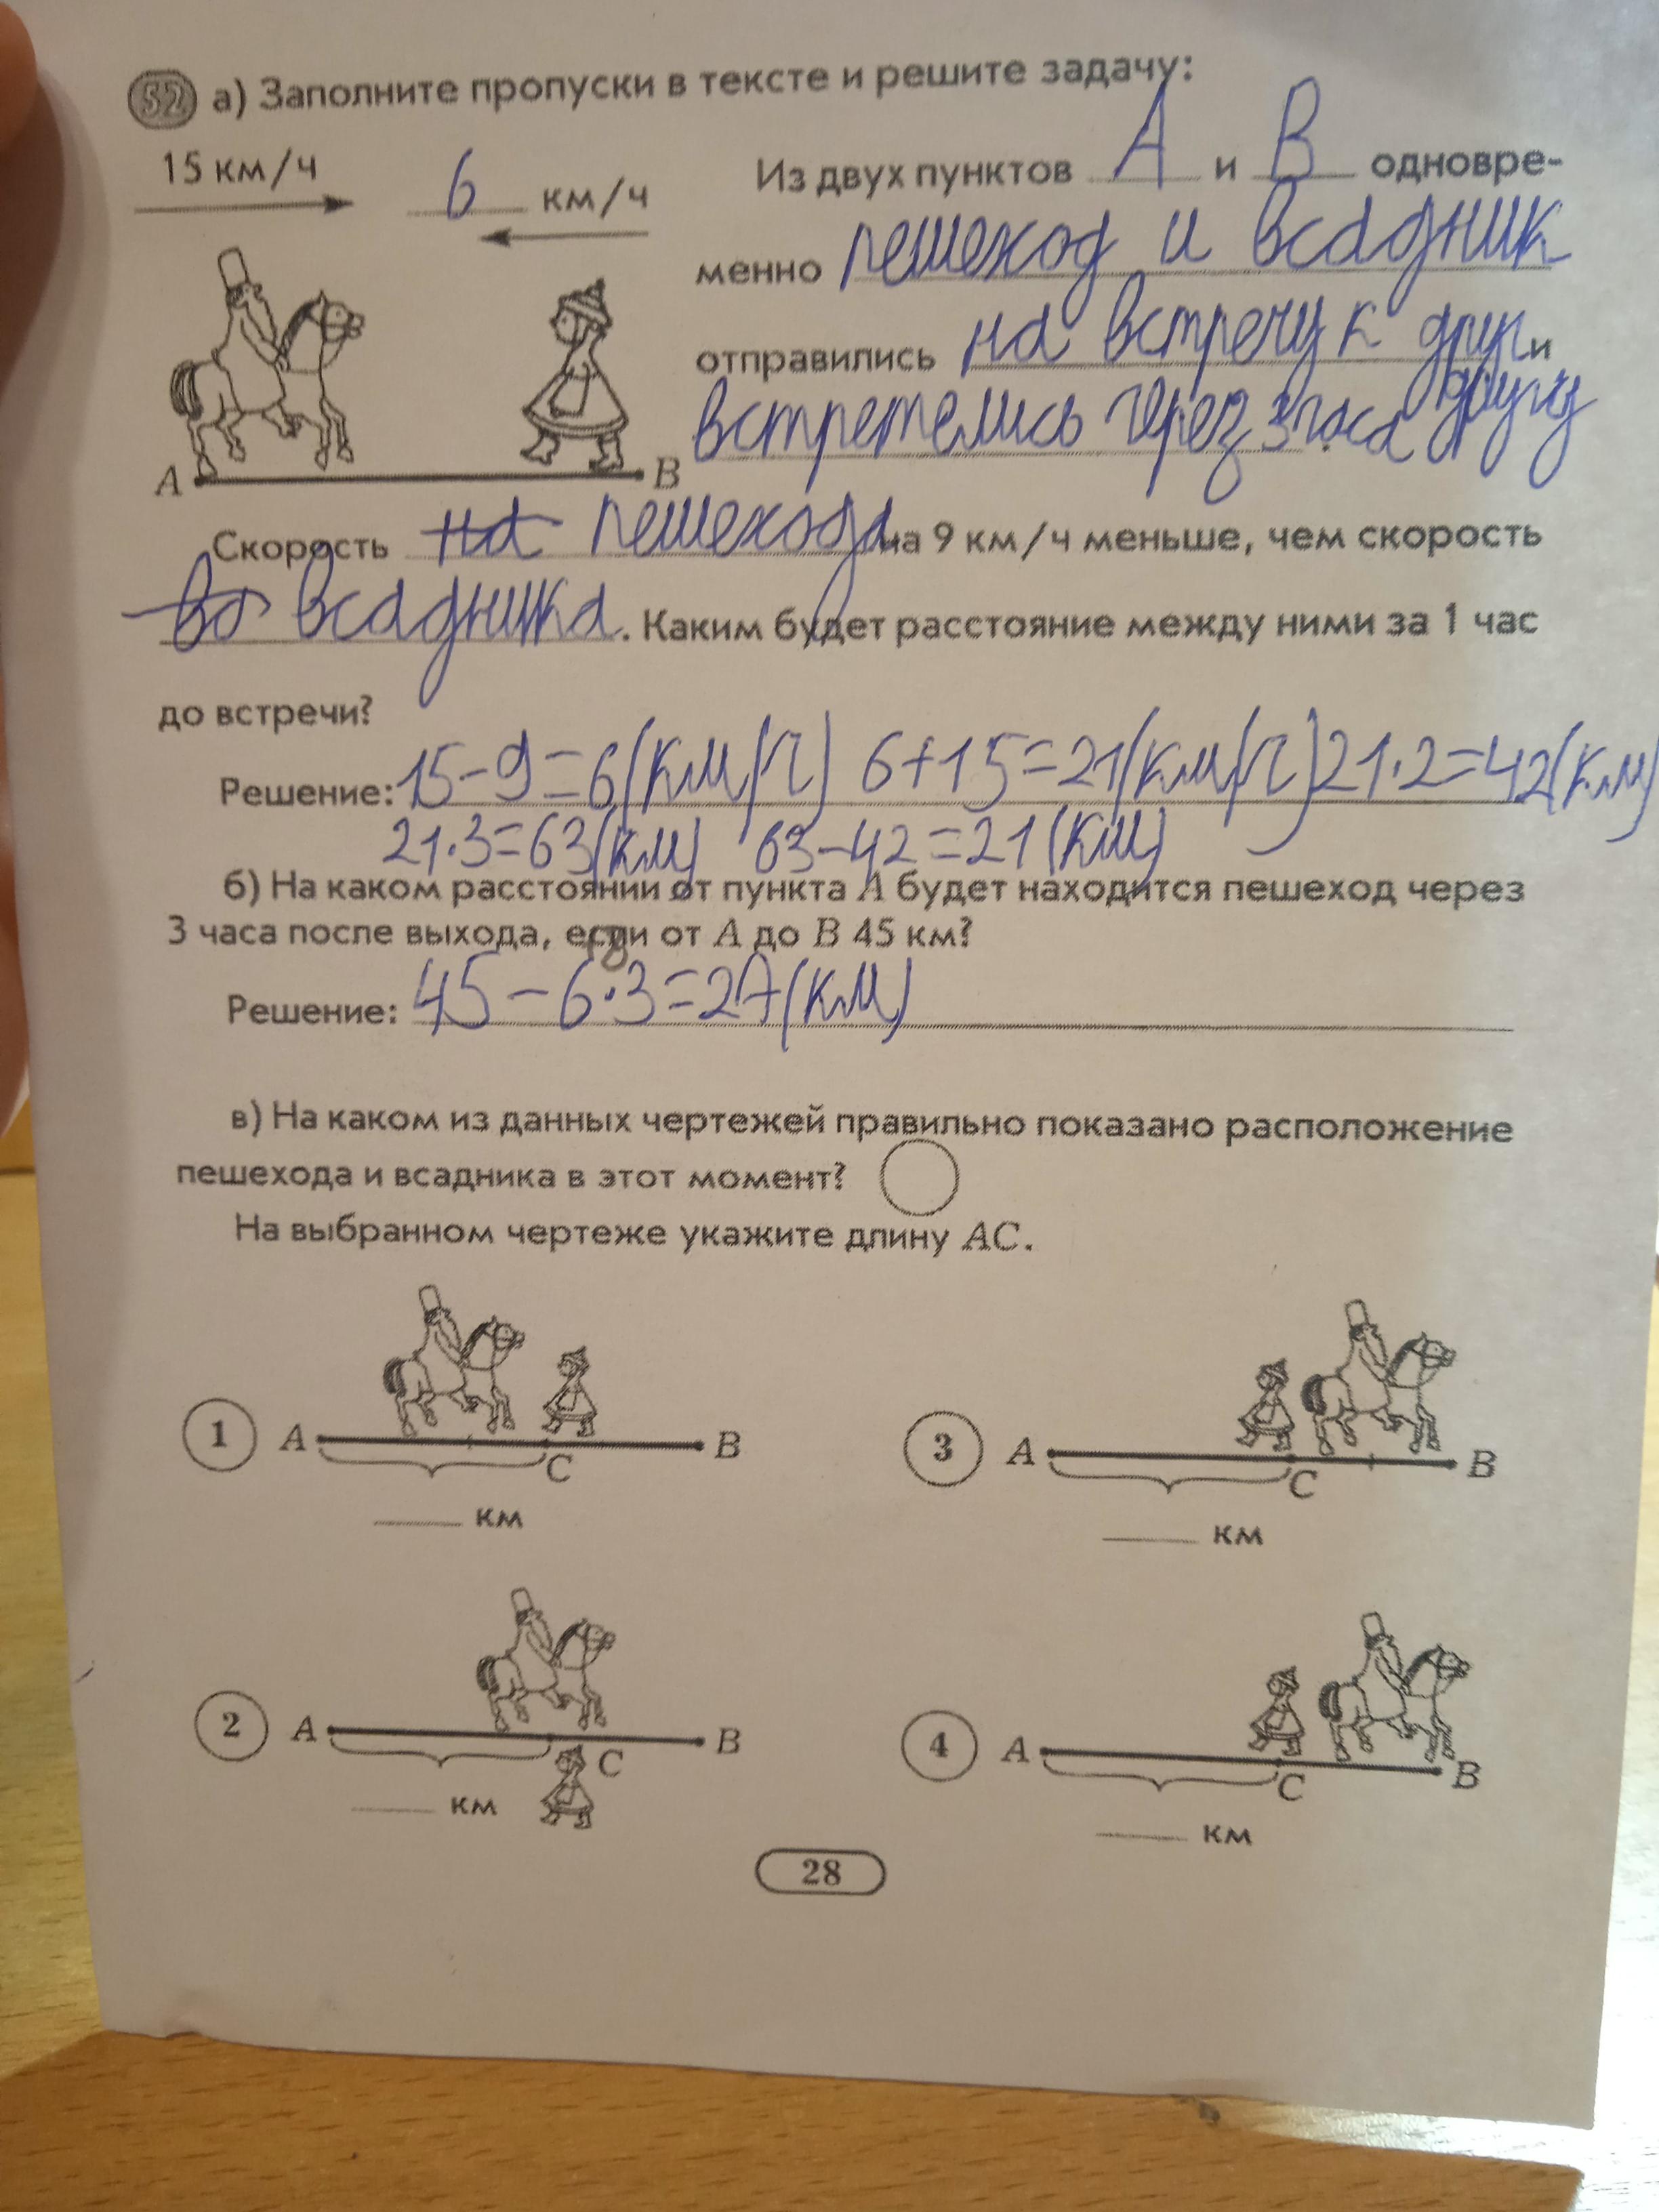 52 а) Заполните пропуски в тексте и решите задачу:
15 км/ч 6 км/ч
Из двух пунктов А и В одновре-
менно пешеход и всадник
отправились на встречу к друг и
другу
встретелись через 3 часа.
A B
Скорость на пешехода на 9 км/ч меньше, чем скорость
во всадника. Каким будет расстояние между ними за 1 час
до встречи?
Решение: 15-9=6(км/ч) 6+15=21(км/ч) 21·2=42(км)
21·3=63(км) 63-42=21(км)
б) На каком расстоянии от пункта A будет находится пешеход через
3 часа после выхода, если от A до B 45 км?
18
Решение: 45-6·3=27(км)
в) На каком из данных чертежей правильно показано расположение
пешехода и всадника в этот момент?
На выбранном чертеже укажите длину AC.
1 A C B
км
3 A C B
км
2 A C B
км
4 A C B
км
28